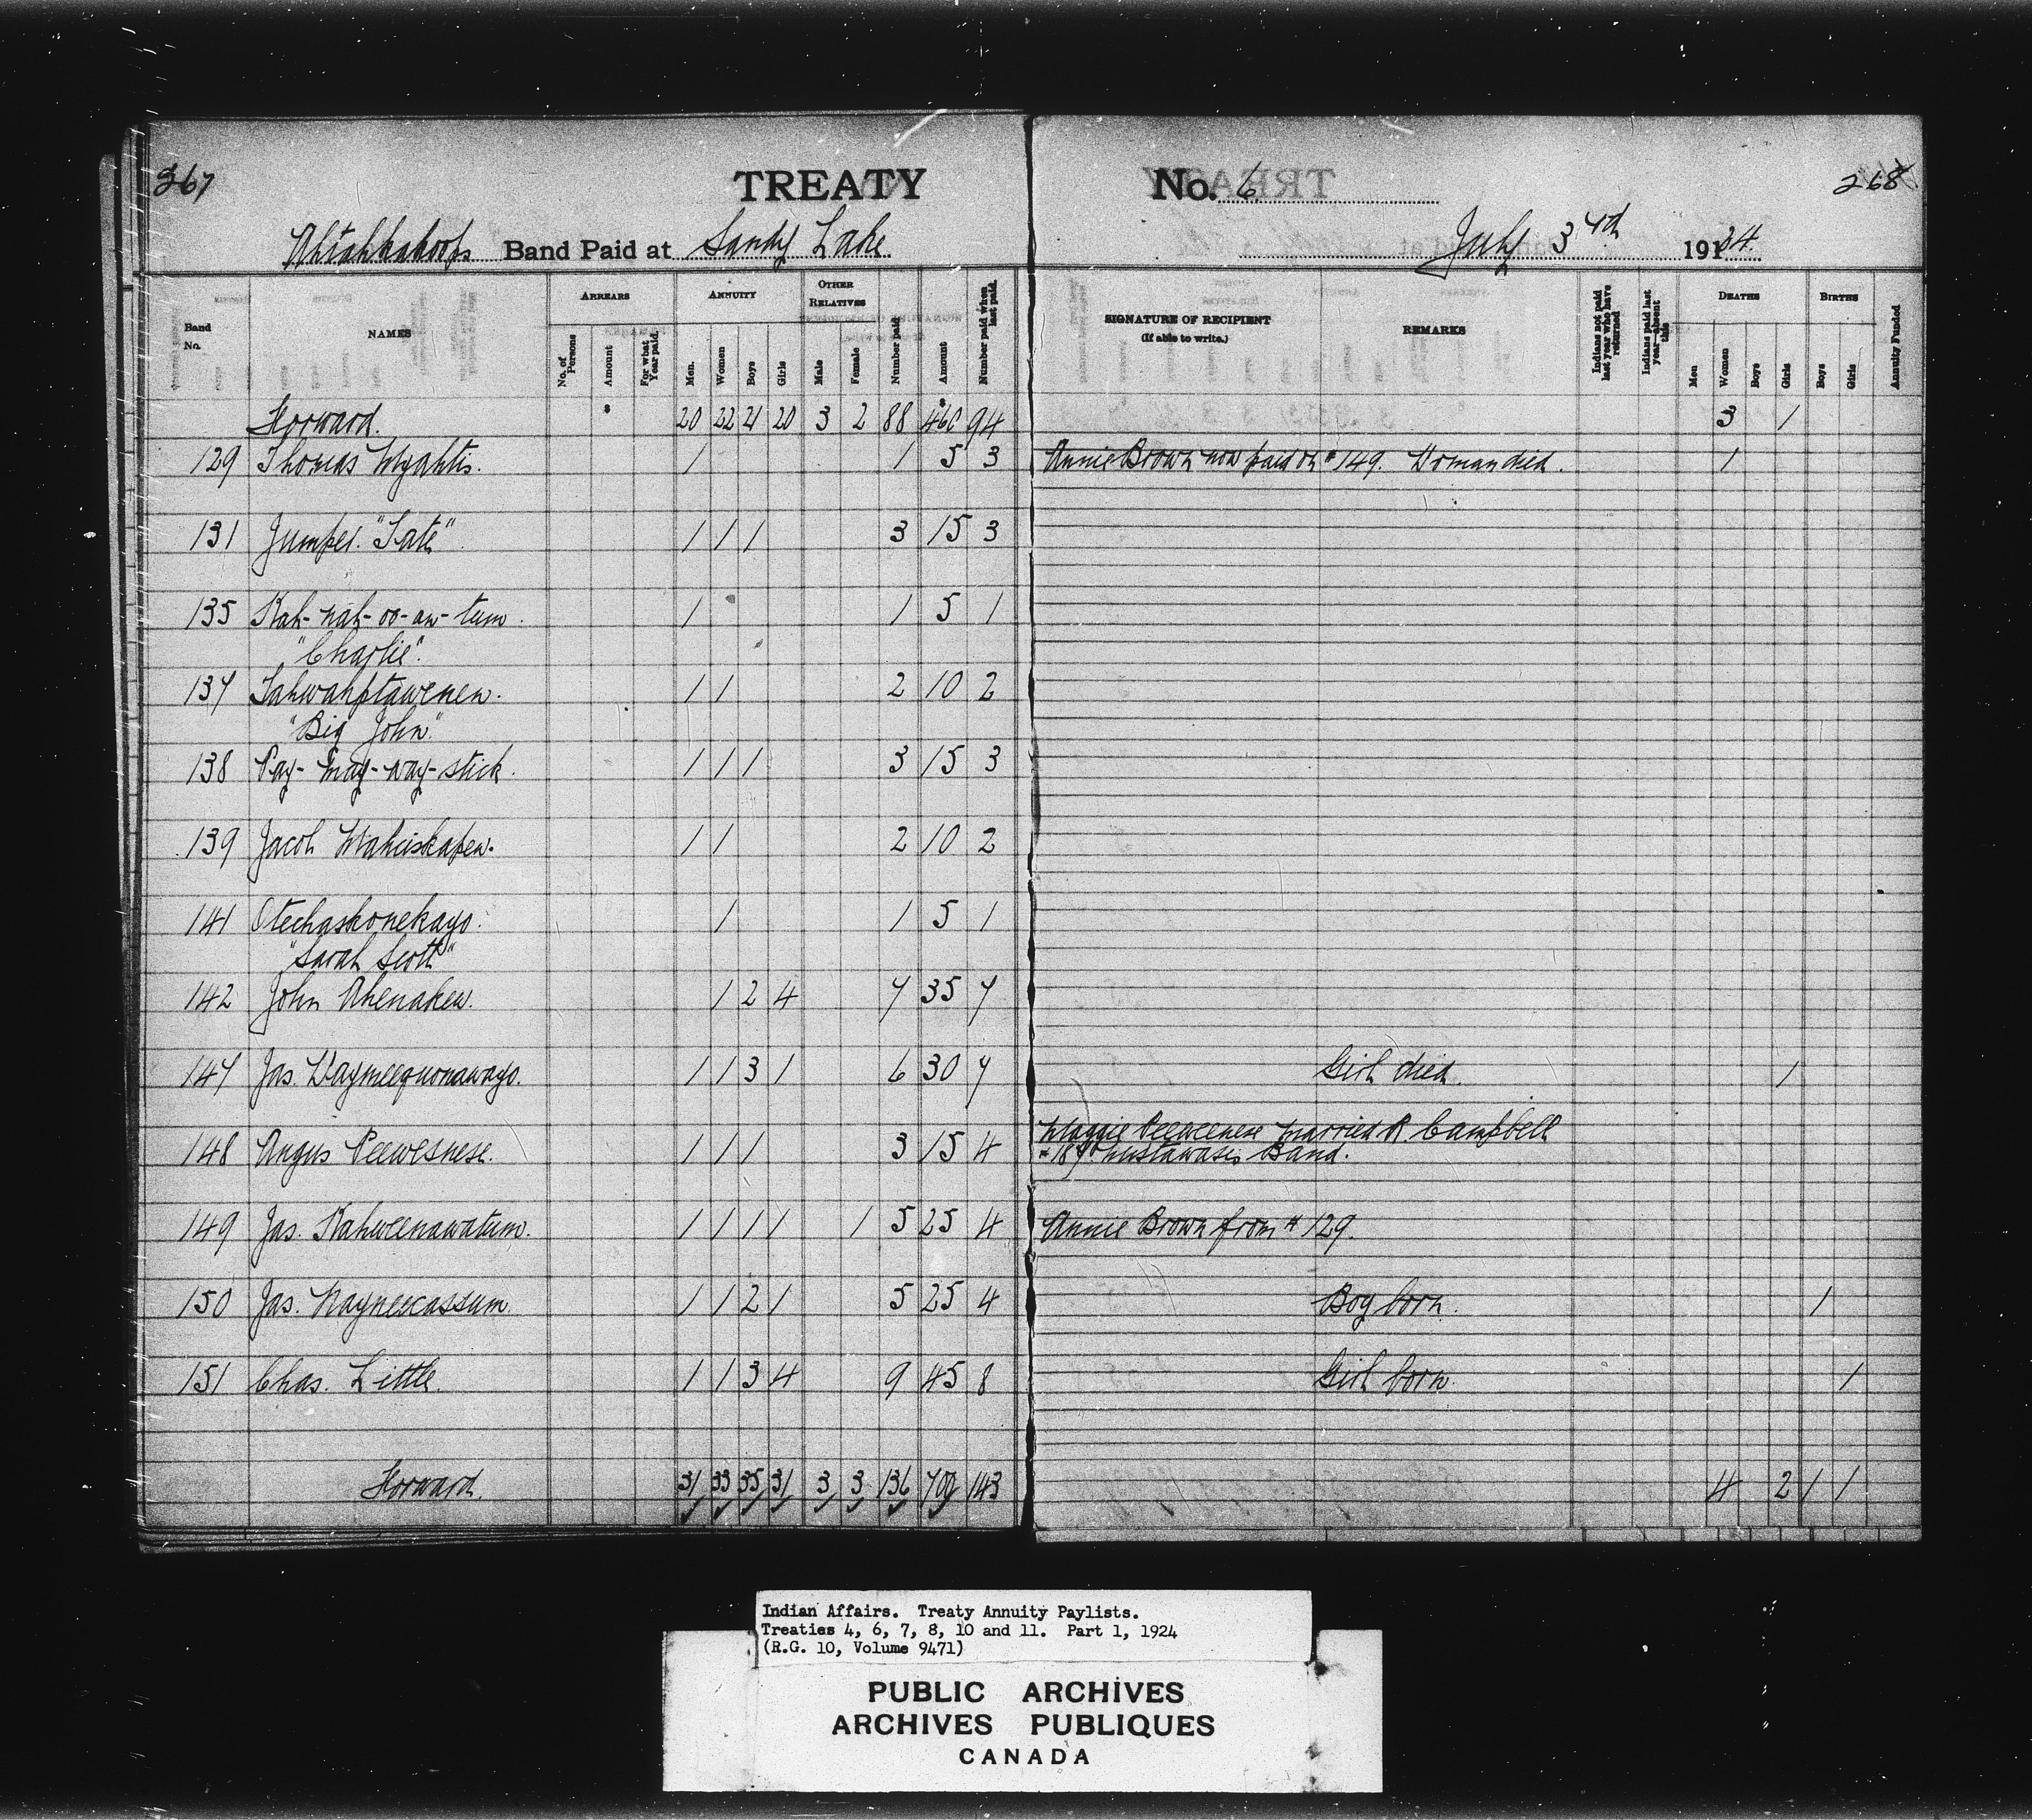 367
TREATY
No. 6
268
Ahtahkakoops Band Paid at Sandy Lake
July 3rd 191 34
Band No.
NAMES
ARREARS
No. of Persons
Amount
For what Year paid.
ANNUITY
Men.
Women
Boys
Girls
OTHER RELATIVES
Male
Female
Number paid
Amount
Number paid when last paid.
SIGNATURE OF RECIPIENT
(If able to write.)
REMARKS
Indians not paid last year who have returned
Indians paid last year—absent this
DEATHS
Men
Women
Boys
Girls
BIRTHS
Boys
Girls
Annuity Funded
Forward. $ 20 22 21 20 3 2 88 $460 94 3 1
129 Thomas 1 1 5 3 Annie Brown now paid on #149. Woman died. 1
131 Jumper. 1 1 1 3 15 3
135 Kah-nah-oo-aw-tum. 1 1 5 1
"Charlie".
137 Tahwahptawenen. 1 1 2 10 2
"Big John"
138 Pay-may-way-stick. 1 1 1 3 15 3
139 Jacob 1 1 2 10 2
141 Otechaskonekayo. 1 1 5 1
"Sarah Scott"
142 John Ahenakew. 1 2 4 7 35 7
147 Jas. 1 1 3 1 6 30 7 Girl died. 1
148 Angus Peewesnese. 1 1 1 3 15 4 Maggie Peeweenese married R. Campbell
Mistawasis Band.
149 Jas. Kahweenawatum. 1 1 1 1 1 5 25 4 Annie Brown from #129.
150 Jas. Nayneecassum. 1 1 2 1 5 25 4 Boy born. 1
151 Chas. Little. 1 1 3 4 9 45 8 Girl born. 1
Forward. 31 33 35 31 3 3 136 700 143 4 2 1 1
Indian Affairs. Treaty Annuity Paylists.
Treaties 4, 6, 7, 8, 10 and 11. Part 1, 1924
(R.G. 10, Volume 9471)
PUBLIC ARCHIVES
ARCHIVES PUBLIQUES
CANADA